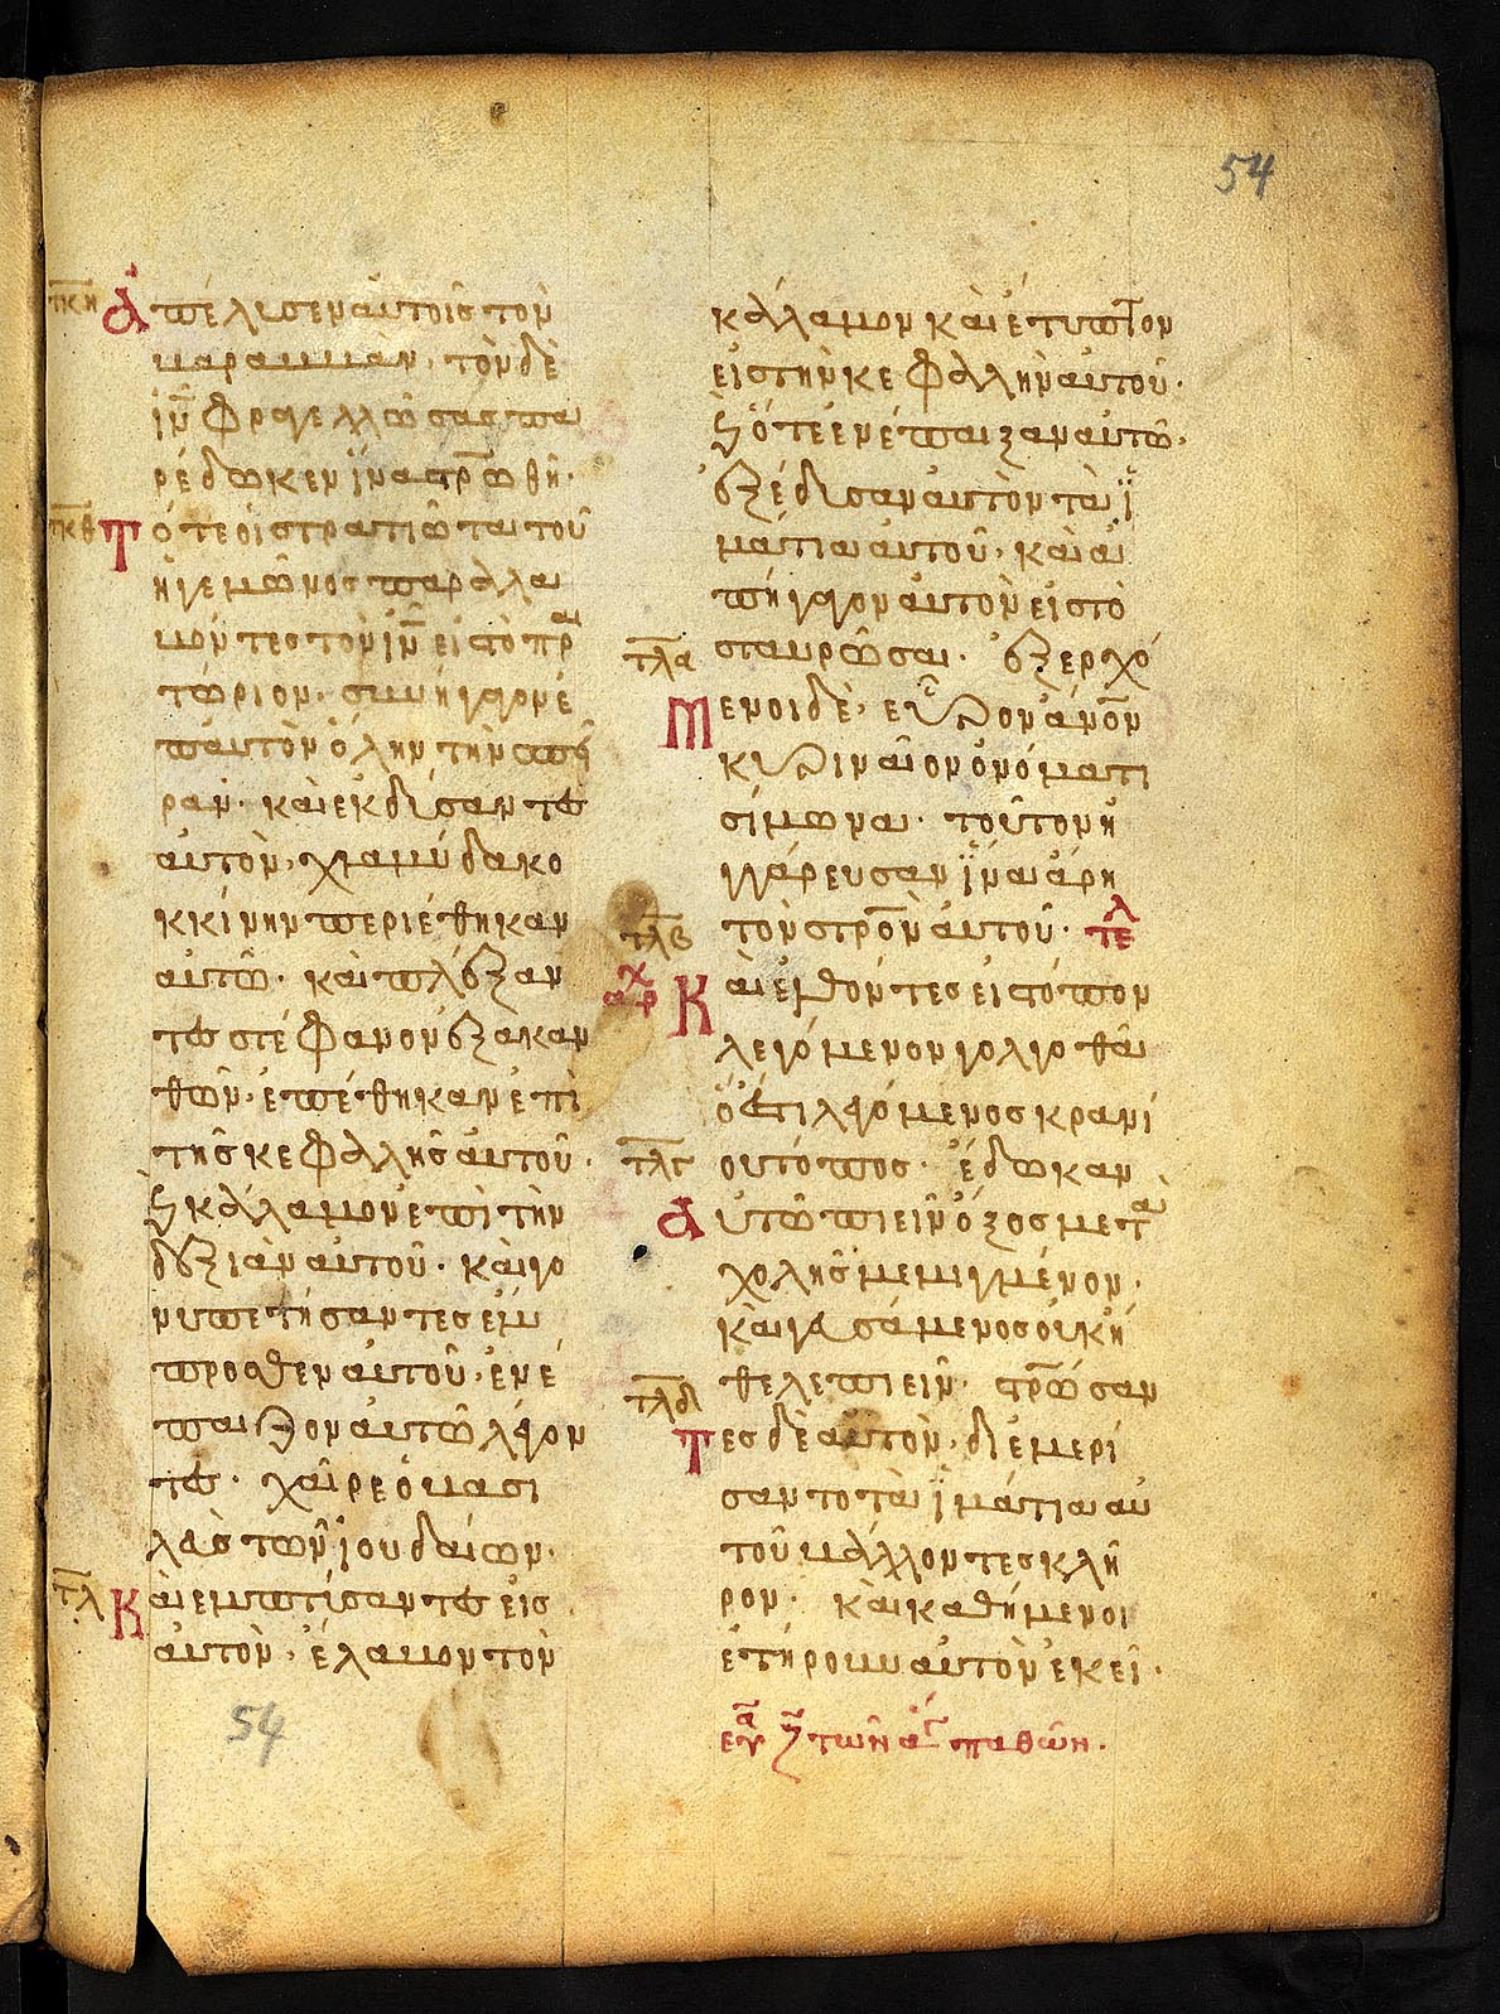 54
τκη Ἀπέλυσεν αὐτοῖς τὸν
βαραββὰν, τὸν δὲ
ιν̅ φραγελλώσας πα
ρέδωκεν ἵνα στρ̅ωθῆ·
τκθ Τότε οἱ στρατιῶται τοῦ
ἡγεμῶνος παραλα
βόντες τὸν ιν̅ εἰς τὸ πραι
τώριον· συνήγαγον ἐ
π αὐτὸν ὅλην τὴν σπεῖ
ραν· καὶ ἐκδύσαντες
αὐτὸν, χλαμύδα κο
κκίνην περιέθηκαν
αὐτῶ· καὶ πλέξαν
τες στέφανον ἐξ ἀκαν
θῶν· ἐπέθηκαν ἐπὶ
τῆς κεφαλλῆς αὐτοῦ·
ϗ κάλαμον ἐπὶ τὴν
δεξιὰν αὐτοῦ· καὶ γο
νυπετήσαντες ἔμ
προσθεν αὐτοῦ· ἐνέ
παιζον αὐτῶ λέγον
τες· χαῖρε ὁ βασι
λεὺς τῶν ἰουδαίων·
τλ Καὶ ἐμπτύσαντες εἰς
αὐτὸν· ἔλαβον τὸν
54
κάλαμον καὶ ἔτυπτον
εἰς τὴν κεφαλὴν αὐτοῦ·
ϗ ὅτε ἐνέπαιξαν αὐτῶ·
ἐξέδυσαν αὐτὸν τὰ ἱ
μάτια αὐτοῦ· καὶ ἀ
πήγαγον αὐτὸν εἰς τὸ
τλα σταυρῶσαι· ἐξερχό
Μενοι δὲ· εὗρον ἀν̅ον
κυριναῖον ὀνόματι
σίμωνα· τοῦτον ἠ
γγάρευσαν ἵνα ἄρη
τλβ τὸν στρ̅ον αὐτοῦ· τελ
αρχ Καὶ ἐλθόντες εἰς τόπον
λεγόμενον γολγοθᾶ
ὅ ἐστι λεγόμενος κρανί
τλγ ου τόπος· ἔδωκαν
Αὐτῶ πιεῖν ὄξος μετὰ
χολῆς μεμιγμένον·
καὶ γευσάμενος οὐκ ἤ
τλδ θελε πιεῖν· στρ̅ώσαν
Τες δὲ αὐτὸν· διεμερί
σαντο τὰ ἱμάτια αὐ
τοῦ βάλλοντες κλῆ
ρον· καὶ καθήμενοι
ἐτήρουν αὐτὸν ἐκεῖ·
ευα ζ τῶν ἁγ παθῶν·